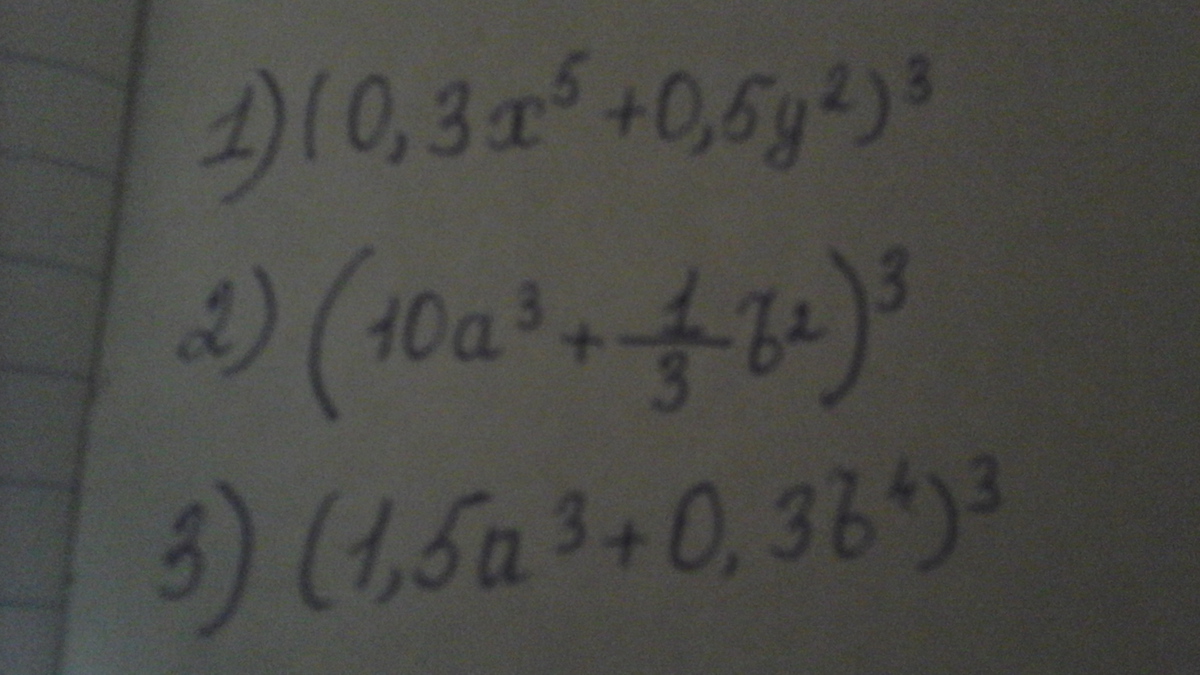 1) (0,3x⁵ + 0,5y²)³
2) (10a³ + 1/3 b²)³
3) (1,5a³ + 0,3b⁴)³